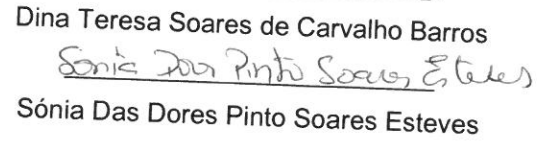 Dina Teresa Soares de Carvalho Barros
Sónia Dores Pinto Soares Esteves
Sónia Das Dores Pinto Soares Esteves